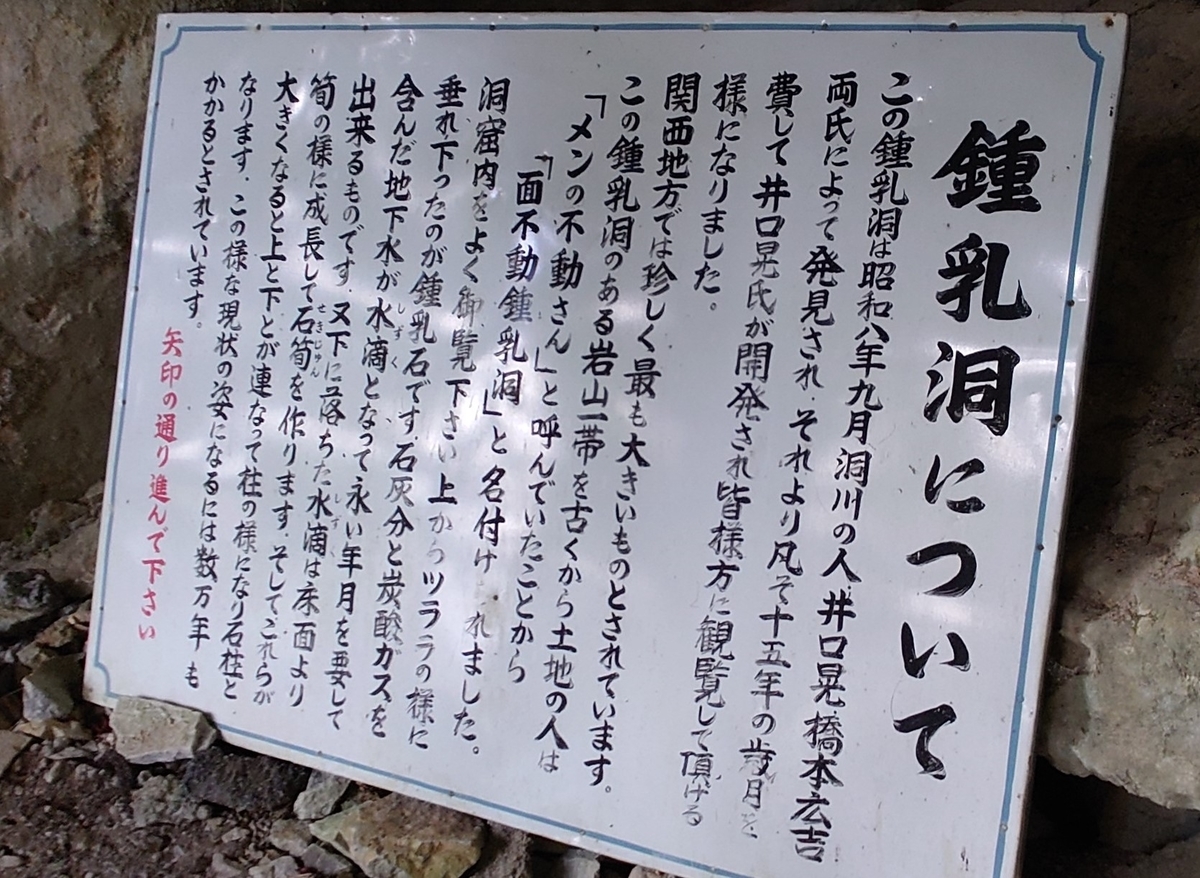 鍾乳洞について
この鍾乳洞は昭和八年九月洞川の人井口晃橋本広吉
両氏によって発見され、それより凡そ十五年の歳月を
費して井口晃氏が開発され皆様方に観覧して頂ける
様になりました。
関西地方では珍しく最も大きいものとされています。
この鍾乳洞のある岩山一帯を古くから土地の人は
「メンの不動さん」と呼んでいたことから
「面不動鍾乳洞」と名付けれました。
洞窟内をよく御覧下さい上からツララの様に
垂れ下ったのが鍾乳石です。石灰分と炭酸ガスを
含んだ地下水が水滴となって永い年月を要して
しずく
出来るものです。又下に落ちた水滴は床面より
しずく
筍の様に成長して石筍を作ります。そしてこれらが
せきじゅん
大きくなると上と下とが連なって柱の様になり石柱と
なります。この様な現状の姿になるには数万年も
かかるとされています。
矢印の通り進んで下さい